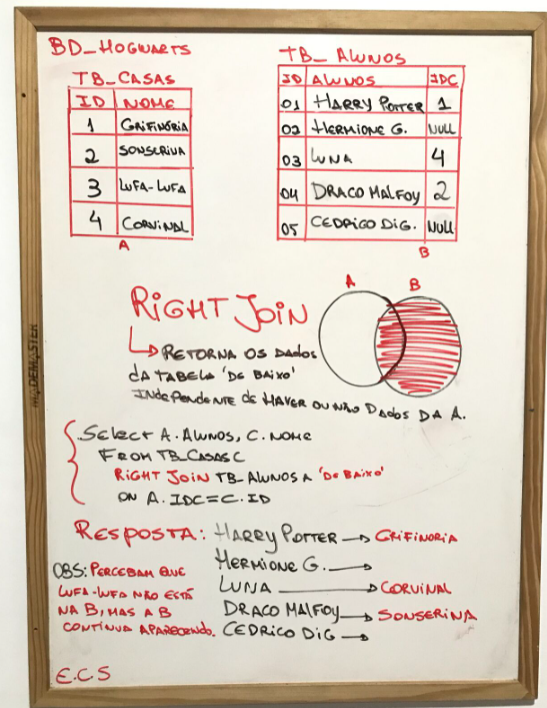 BD_HOGWARTS
TB_CASAS
ID NOME
1 GRIFINÓRIA
2 SONSERINA
3 LUFA-LUFA
4 CORVINAL
A
TB_ALUNOS
ID ALUNOS IDC
01 HARRY POTTER 1
02 HERMIONE G. NULL
03 LUNA 4
04 DRACO MALFOY 2
05 CEDRICO DIG. NULL
B
RIGHT JOIN
A B
RETORNA OS DADOS
DA TABELA 'DE BAIXO'
INDEPENDENTE DE HAVER OU NÃO DADOS DA A.
SELECT A.ALUNOS, C.NOME
FROM TB_CASAS C
RIGHT JOIN TB_ALUNOS A 'DE BAIXO'
ON A.IDC=C.ID
RESPOSTA: HARRY POTTER → GRIFINORIA
HERMIONE G. →
LUNA → CORVINAL
DRACO MALFOY → SONSERINA
CEDRICO DIG →
OBS: PERCEBAM QUE
LUFA-LUFA NÃO ESTÁ
NA B, MAS A B
CONTINUA APARECENDO.
E.C.S